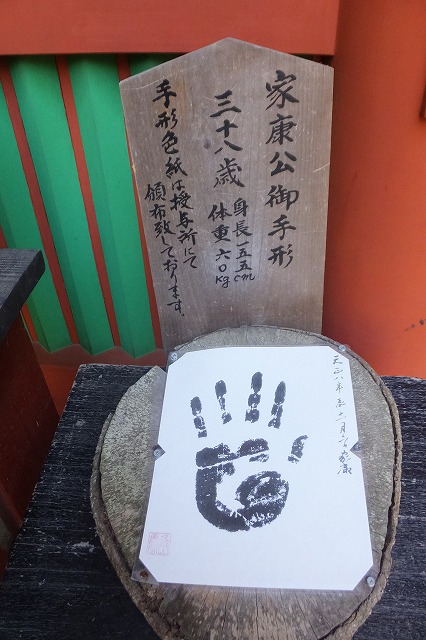 家康公御手形
三十八歳 身長一五五cm
体重六0kg
手形色紙は授与所にて
頒布致しております。